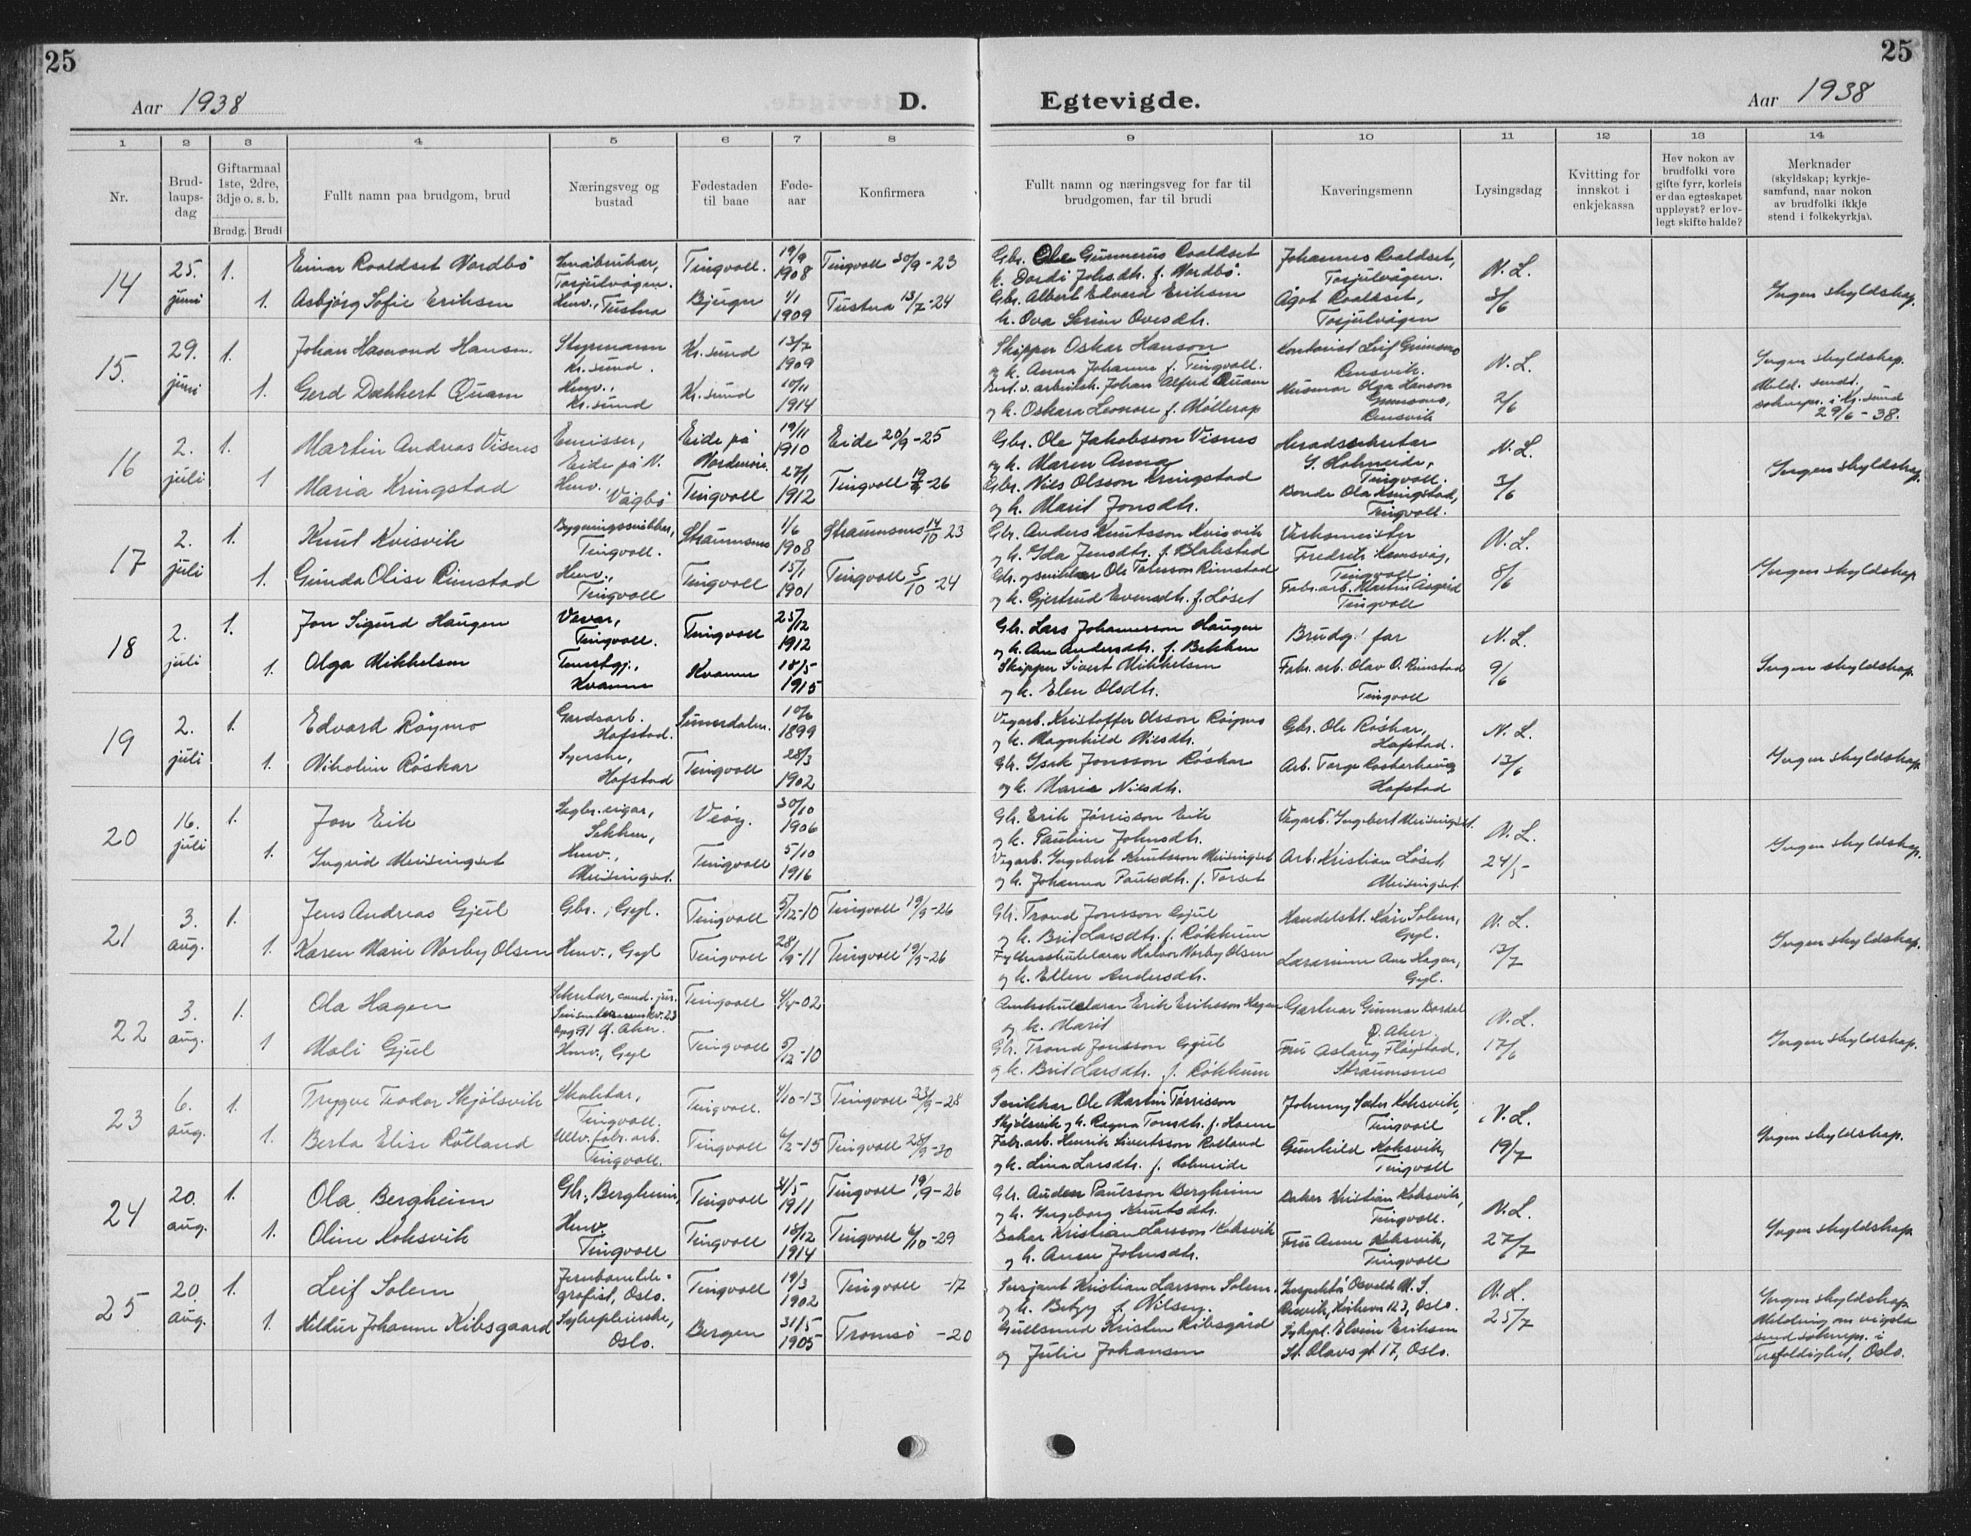 25
25
Aar 1938
D. Egtevigde.
Aar 1938
1 2 3 4 5 6 7 8 9 10 11 12 13 14
Nr.
Brud-
laups-
dag
Giftarmaal
1ste, 2dre,
3dje o. s. b.
Brudg. Brudi
Fullt namn paa brudgom, brud
Næringsveg og
bustad
Fødestaden
til baae
Føde-
aar
Konfirmera
Fullt namn og næringsveg for far til
brudgomen, far til brudi
Kaveringsmenn
Lysingsdag
Kvitting for
innskot i
enkjekassa
Hev nokon av
brudfolki vore
gifte fyrr, korleis
er dan egteskapet
uppløyst? er lov-
legt skifte halde?
Merknader
(skyldskap; kyrkje-
samfund, naar nokon
av brudfolki ikkje
stend i folkekyrkja).
14
25. juni
1.
Einar Roaldset Nordbø
Småbrukar,
Torjulvågen.
Tingvoll.
19/9 1908
Tingvoll 30/9-23
Gbr. Ole Gunnerus Roaldset
k. Dordi Johsdtr. f. Nordbø.
Johannes Roaldset,
Torjulvågen.
N. L.
3/6
Ingen skyldskap.
1.
Asbjørg Sofie Eriksen
Heimv., Tustna
Bjugn
1/1 1909
Tustna 13/7-24
Gbr. Albert Edvard Eriksen
k. Ova Serine Ovesdtr.
Ågot Roaldset,
Torjulvågen
15.
29. juni
1.
Johan Hamond Hansen.
Styrmann
Kr.sund.
Kr.sund
13/7 1909
Skipper Oskar Hanson
og k. Anna Johanne f. Tingvoll.
Kontorist Leif Grimsmo
Rensvik.
N. L.
2/6
Ingen skyldskap.
Meld. sendt
sokneprs. i Kr.sund
29/6-38.
1.
Gerd Dekkert Quam
Heimv.,
Kr.sund
Kr.sund
10/11 1914
Johan Alfred Quam
og k. Oskara Leonore f. Møllerop
Olga Hanson
Grimsmo,
Rensvik
16
2. juli
1.
Martin Andreas Visnes
Emissær,
Eide på N.
Eide på
Nordmøre.
19/11 1910
Eide 20/9-25
Gbr. Ole Jakobsson Visnes
og k. Maren Anna
Heradssekretær
S. Holmeide,
Tingvoll.
N. L.
3/6
Ingen skyldskap.
1
Maria Kringstad
Heimv. Vågbø
Tingvoll
27/1 1912
Tingvoll 19/9-26
Gbr. Nils Olsson Kringstad
og k. Marit Jonsdtr.
Bonde Ola Kringstad,
Tingvoll.
17
2. juli
1.
Knut Kvisvik
Bygningssnikkar,
Tingvoll.
Straumsnes
1/6 1908
Straumsnes 14/10 23
Gbr. Anders Knutsson Kvisvik
og k. Ida Jensdtr. f. Blakstad
Verksmeister
Fredrik Hamsvåg,
Tingvoll.
N. L.
8/6
Ingen skyldskap
1.
Gunda Olise Rimstad
Heimv.,
Tingvoll
Tingvoll
15/1 1901
Tingvoll 5/10-24
Gbr. og snikkar Ole Tolesson Rimstad
og k. Gjertrud Evensdtr. f. Løset
Fabr.arb. Martin Aasgård
Tingvoll
18
2. juli
1.
Jon Sigurd Haugen
Vevar,
Tingvoll.
Tingvoll
25/12 1912
Gbr. Lars Johannesson Haugen
og k. Ane Andersdtr. f. Bekken
Brudg. far
N. L.
9/6
Ingen skyldskap.
1.
Olga Mikkelsen
Tenestgj.,
Kvanne
Kvanne
18/5 1915
Skipper Sivert Mikkelsen
og k. Elen Olsdtr.
Fabr. arb. Olav O. Rimstad
Tingvoll
19
2. juli
1.
Edvard Røymo
Gardsarb.
Hafstad.
Sunndalen.
10/6 1899
Vegarb. Kristoffer Olsson Røymo
og k. Magnhild Nilsdtr.
Gbr. Ole Røskar,
Hafstad.
N. L.
13/6
Ingen skyldskap.
1.
Nikoline Røskar
Syerske,
Hafstad
Tingvoll
28/3 1902
Gbr. Isak Jonsson Røskar
og k. Marie Nilsdtr.
Arb. Torge
Hafstad
20
16. juli
1.
Jon Eik
Sagbr.eigar,
Sekken,
Veøy.
30/10 1906
Gbr. Erik Jørrisson Eik
og k. Pauline Johnsdtr.
Vegarb. Ingebert Meisingset.
N. L.
24/5
Ingen skyldskap.
1.
Ingrid Meisingset
Heimv.,
Meisingset.
Tingvoll
5/10 1916
Vegarb. Ingebert Knutsson Meisingset
og k. Johanna Paulsdtr. f. Torset
Arb. Kristian Løset,
Meisingset.
21
3. aug.
1.
Jens Andreas Gjul
Gbr., Gyl.
Tingvoll
5/12-10
Tingvoll 19/9-26
Gbr. Trond Jonsson Gjul
og k. Brit Larsdtr. f. Røkkum
Handelsbt. Kåre Solem,
Gyl.
N. L.
13/7
Ingen skyldskap.
1.
Karen Marie Norby Olsen
Heimv., Gyl
Tingvoll
28/9-11
Tingvoll 19/9-26
Fylkesskulelærar Halvor Norby Olsen
og k. Ellen Andersdtr.
Lærarinne Ane Hagen,
Gyl.
22
3. aug.
1.
Ola Hagen
Sekretær, cand. jur.
opg. 91 V. Aker.
Tingvoll
4/4-02
Amtsskulelærar Erik Eriksson Hagen
og k. Marit
Gartnar Gunnar Bordal
V. Aker.
N. L.
17/6
Ingen skyldskap.
1
Mali Gjul
Heimv., Gyl
Tingvoll
5/12-10
Gbr. Trond Jonsson Gjul
og k. Brit Larsdtr. f. Røkkum
Fru Aslaug Fløystad,
Straumsnes
23
6. aug.
1.
Trygve Teodor Skjølsvik
Skultar,
Tingvoll.
Tingvoll.
4/10-13
Tingvoll 23/9-28
Snikkar Ole Martin Tørrisson
Skjølsvik og k. Ragna Tomsdtr. f. Hoem
Johnny Sæter Koksvik,
Tingvoll
N. L.
19/7
Ingen skyldskap.
1.
Berta Elise Rolland
Ullv.fabr.arb.
Tingvoll.
Tingvoll
4/2-15
Tingvoll 28/9-30
Fabr.arb. Henrik Sivertsson Rolland
og k. Lina Larsdtr. f. Holmeide
Gunhild Koksvik,
Tingvoll
24
20. aug.
1.
Ola Bergheim
Gbr., Bergheim,
Tingvoll
21/5 1911
Tingvoll 19/9-26
Gbr. Anders Paulsson Bergheim
og k. Ingeborg Knutsdtr.
Baker Kristian Koksvik,
Tingvoll.
N. L.
27/7
Ingen skyldskap.
1.
Oline Koksvik
Heimv.
Tingvoll
Tingvoll
18/12 1914
Tingvoll 6/10-29
Baker Kristian Larsson Koksvik
og k. Anne Johnsdtr.
Fru Anne Koksvik,
Tingvoll
25
20. aug.
1.
Leif Solem
Jernbanetele-
grafist, Oslo.
Tingvoll
19/3 1902
Tingvoll -17
Sersjant Kristian Larsson Solem.
og k. Betzy f. Nilsen.
Inspektør Osvald M. S.
Resvik, Kirkeveien 123, Oslo.
N. L.
25/7
Ingen skyldskap.
Melding om vigsla
send sokneprs. i
Trefoldighet, Oslo.
1.
Hildur Johanne Kibsgaard
Sykepleierske,
Oslo.
Bergen
31/5 1905
Tromsø -20
Gullsmed Kristen Kibsgård
og Julie Johansen
Sykepl. Elvine Eriksen
St. Olavs gt 17, Oslo.